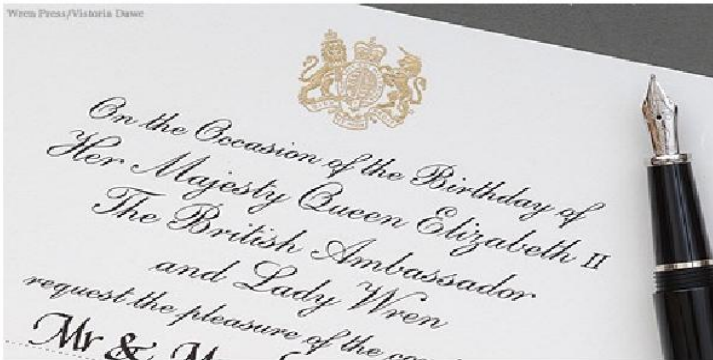 Wren Press/Victoria Dawe
On the Occasion of the Birthday of
Her Majesty Queen Elizabeth II
The British Ambassador
and Lady Wren
request the pleasure of the
Mr &